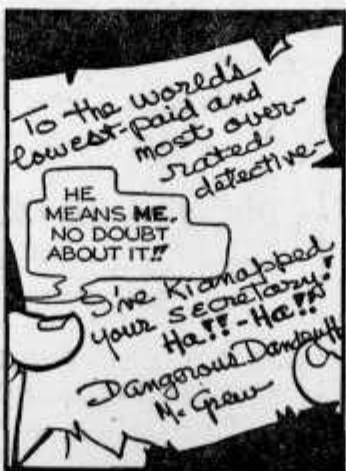 To the world's
lowest-paid and
most over-
rated
detective-
HE
MEANS ME.
NO DOUBT
ABOUT IT!!
I've Kidnapped
your secretary!
Ha!!-Ha!!
Dangerous Dandruff
McGrew